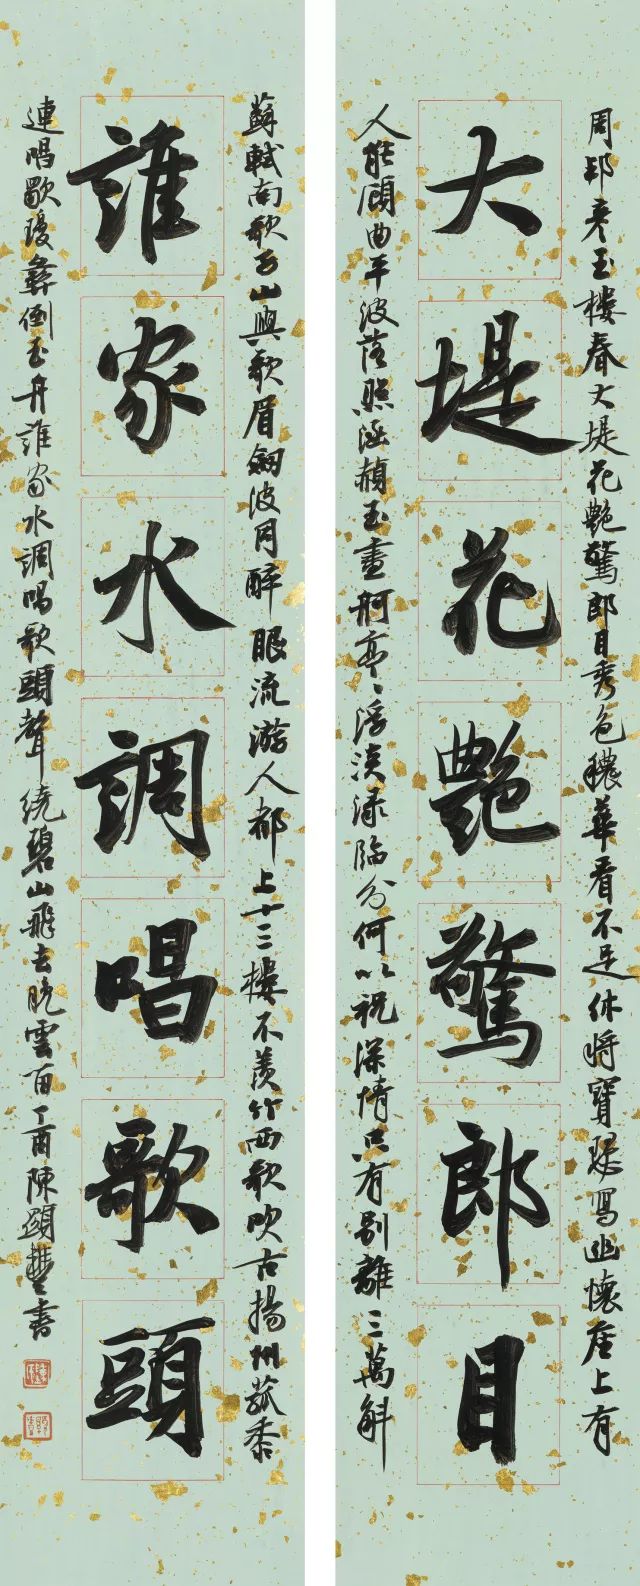 周邦彦玉樓春大堤花艷驚郎目秀色穠華看不足休將寶瑟寫幽懷座上有
大堤花艷驚郎目
人能顧曲平波落照涵赬玉畫舸亭〻浮淡渌臨分何以祝深情只有別離三萬斛
蘇軾南歌子山與歌眉斂波同醉眼流游人都上十二樓不羨竹西歌吹古揚州菰黍
誰家水調唱歌頭
連唱歜瓊彝倒玉舟誰家水調唱歌頭聲繞碧山飛去晚雲留丁酉陳顯豐書